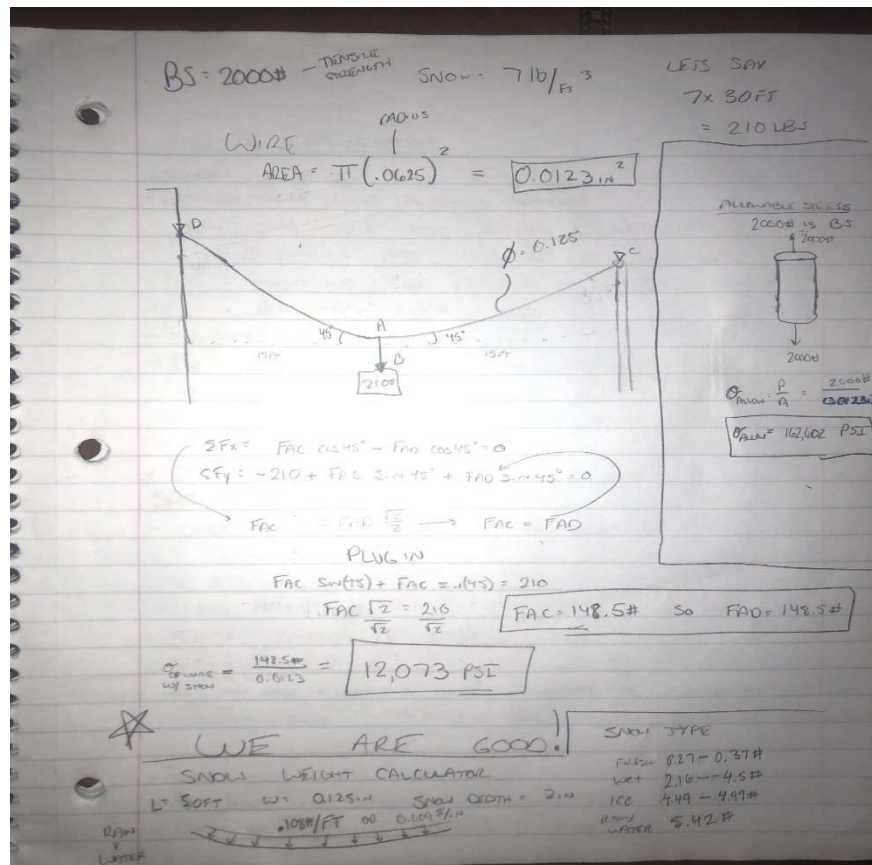 BS = 2000# - TENSILE STRENGTH
SNOW = 7 lb/FT 3
LETS SAY
7 x 30FT
= 210 LBS
RADIUS
WIRE
AREA = π(.0625)² = 0.0123 in²
ALLOWABLE STRESS
2000# is BS
2000#
2000#
σALLOW = P/A = 2000#/0.0123
σALLOW = 162,602 PSI
D
Ø = 0.125
C
45°
A
45°
15FT
B
15FT
210#
ΣFx = FAC cos45° - FAD cos45° = 0
ΣFy = -210 + FAC Sin45° + FAD Sin45° = 0
FAC = FAD √2/2 → FAC = FAD
PLUG IN
FAC Sin(45) + FAC sin(45) = 210
FAC √2/√2 = 210/√2
FAC = 148.5# So FAD = 148.5#
σ OF WIRE W/ SNOW = 148.5#/0.0123 = 12,073 PSI
WE ARE GOOD!
SNOW WEIGHT CALCULATOR
L = 50FT W = 0.125in SNOW DEPTH = 2in
.108#/FT OR 0.009#/in
RAIN & WATER
SNOW TYPE
FRESH 0.27 - 0.37#
Wet 2.16 - 4.5#
ICE 4.49 - 4.99#
WATER 5.42#